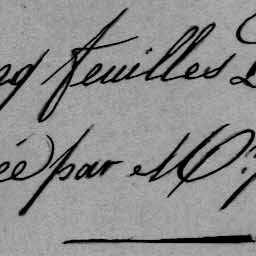 feuilles
ée par M